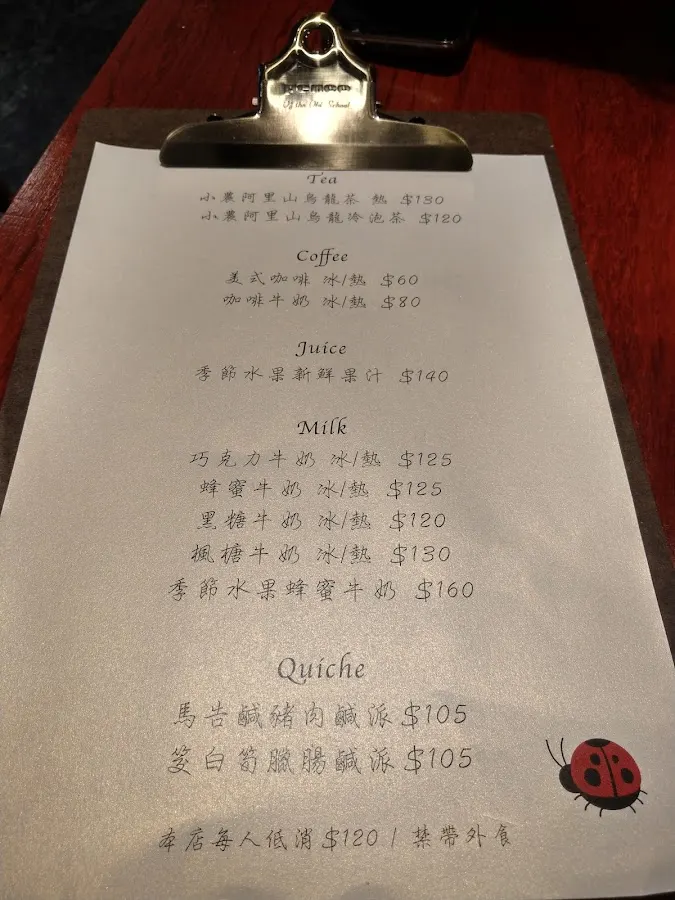 Of the Old School
Tea
小農阿里山烏龍茶 熱 $130
小農阿里山烏龍冷泡茶 $120
Coffee
美式咖啡 冰/熱 $60
咖啡牛奶 冰/熱 $80
Juice
季節水果新鮮果汁 $140
Milk
巧克力牛奶 冰/熱 $125
蜂蜜牛奶 冰/熱 $125
黑糖牛奶 冰/熱 $120
楓糖牛奶 冰/熱 $130
季節水果蜂蜜牛奶 $160
Quiche
馬告鹹豬肉鹹派 $105
筊白筍臘腸鹹派 $105
本店每人低消 $120 / 禁帶外食